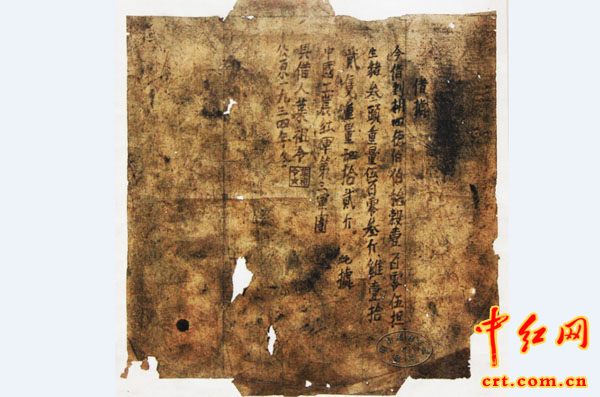 借據
今借到胡四德伯伯稻穀壹百零伍担
生豬叁頭重量伍百零叁斤雞壹拾
貳隻重量肆拾貳斤。此據
中國工農紅軍第三軍團
具借人葉祖令
公元一九三四年冬
中红网
crt.com.cn